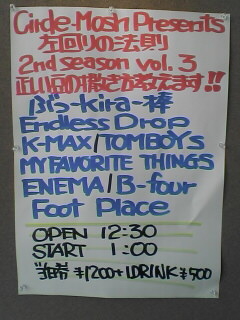 Circle-Mosh Presents
左回りの法則
2nd season vol. 3
正しい店の撤き方教えます!!
ぶっ-kira-棒
Endless Drop
K-MAX/TOMBOYS
MY FAVORITE THINGS
ENEMA/B-four
Foot Place
OPEN 12:30
START 1:00
当日券 ¥1200+1DRINK ¥500